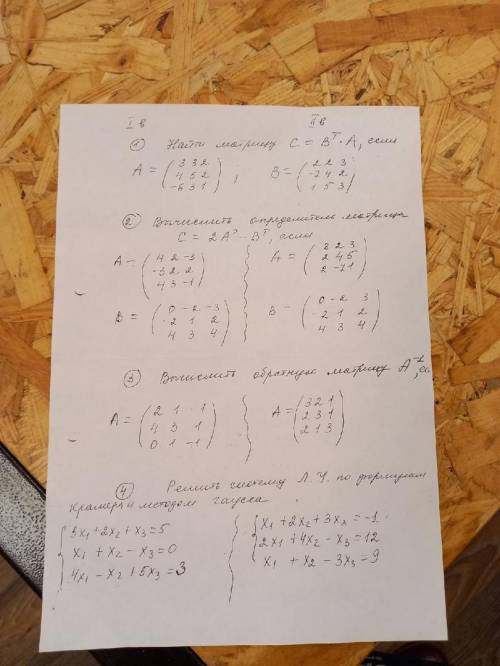 I в    II в
① Найти матрицу C = Bᵀ · A, если
A = ( 3 3 2 ; 4 5 2 ; -6 3 1 ) , B = ( 2 2 3 ; -7 4 2 ; 1 5 3 )
② Вычислить определитель матрицы
C = 2A² - Bᵀ, если
A = ( 4 2 -3 ; -3 2 2 ; 4 3 -1 )    A = ( 2 2 3 ; 2 4 5 ; 2 -7 1 )
B = ( 0 -2 -3 ; -2 1 2 ; 4 3 4 )    B = ( 0 -2 3 ; -2 1 2 ; 4 3 4 )
③ Вычислить обратную матрицу A⁻¹,
A = ( 2 1 1 ; 4 3 1 ; 0 1 -1 )    A = ( 3 2 1 ; 2 3 1 ; 2 1 3 )
④ Решить систему Л. У. по формулам
Крамера и методом гаусса
3x₁ + 2x₂ + x₃ = 5    x₁ + 2x₂ + 3x₃ = -1
x₁ + x₂ - x₃ = 0    2x₁ + 4x₂ - x₃ = 12
4x₁ - x₂ + 5x₃ = 3    x₁ + x₂ - 3x₃ = 9